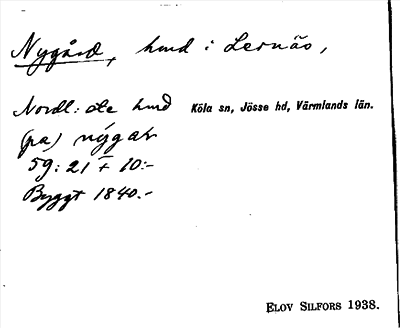 Nygård, hmd i Lernäs,
Nordl: ote hmd Köla sn, Jösse hd, Värmlands län.
(pa) nýgar
59:21 + 10:-
Byggt 1840.-
ELOV SILFORS 1938.